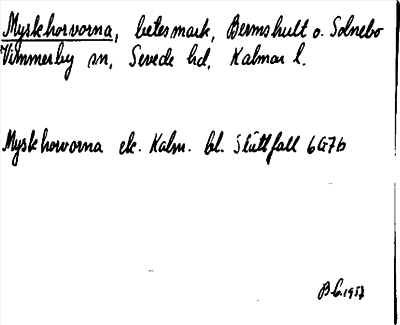 Myskhorvorna, betesmark, Bermshult o. Solnebo
Vimmerby sn, Sevede hd, Kalmar l.
Myskhorvorna ek. Kalm. bl. Slättfall 6G7b
B.G. 1957